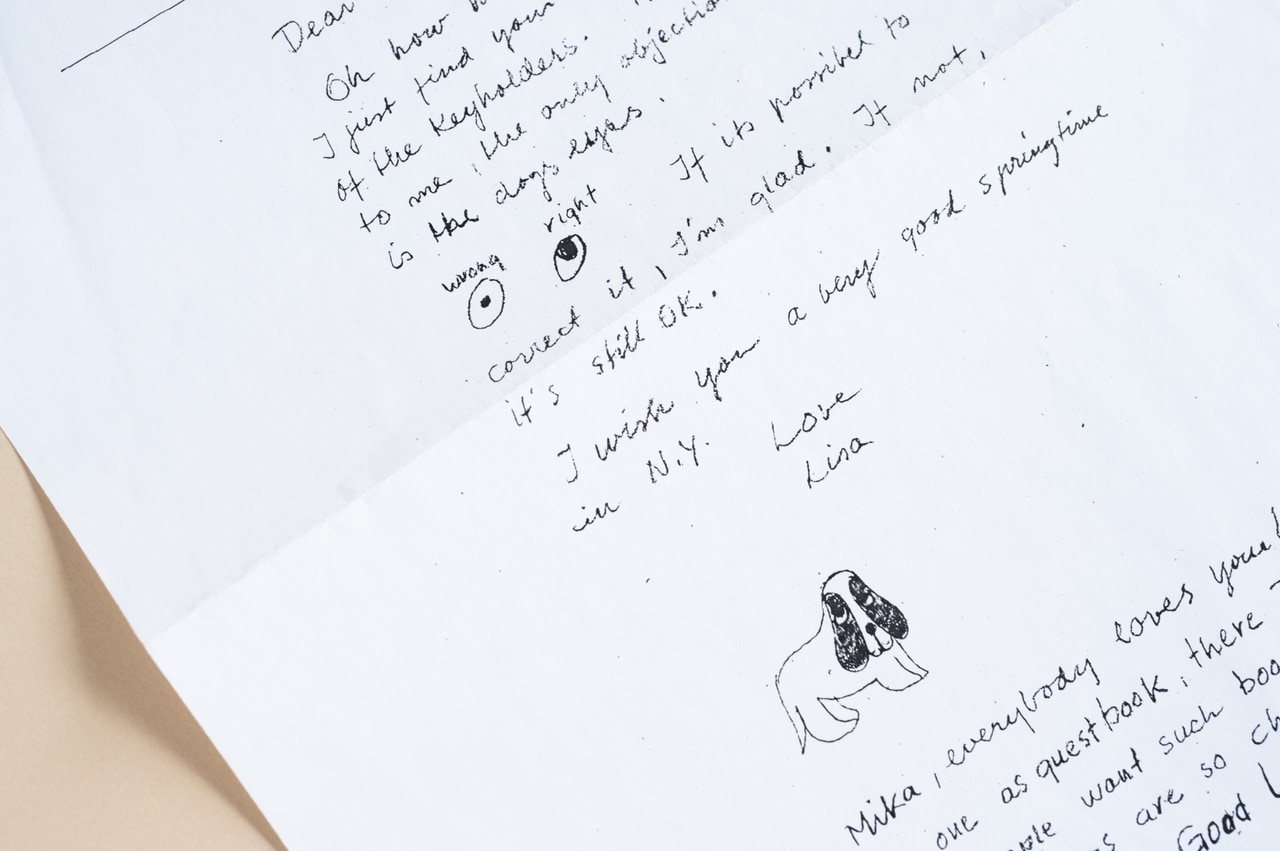 Dear
Oh how
I just find your
of the Keyholders.
to me, the only objection
is the dogs eyes.
wrong right If its possibel to
correct it, I'm glad. If not,
it's still OK.
I wish you a very good springtime
in N.Y.
Love
Lisa
Mika, everybody loves your
one as guestbook, there
want such boo
are so ch
Good